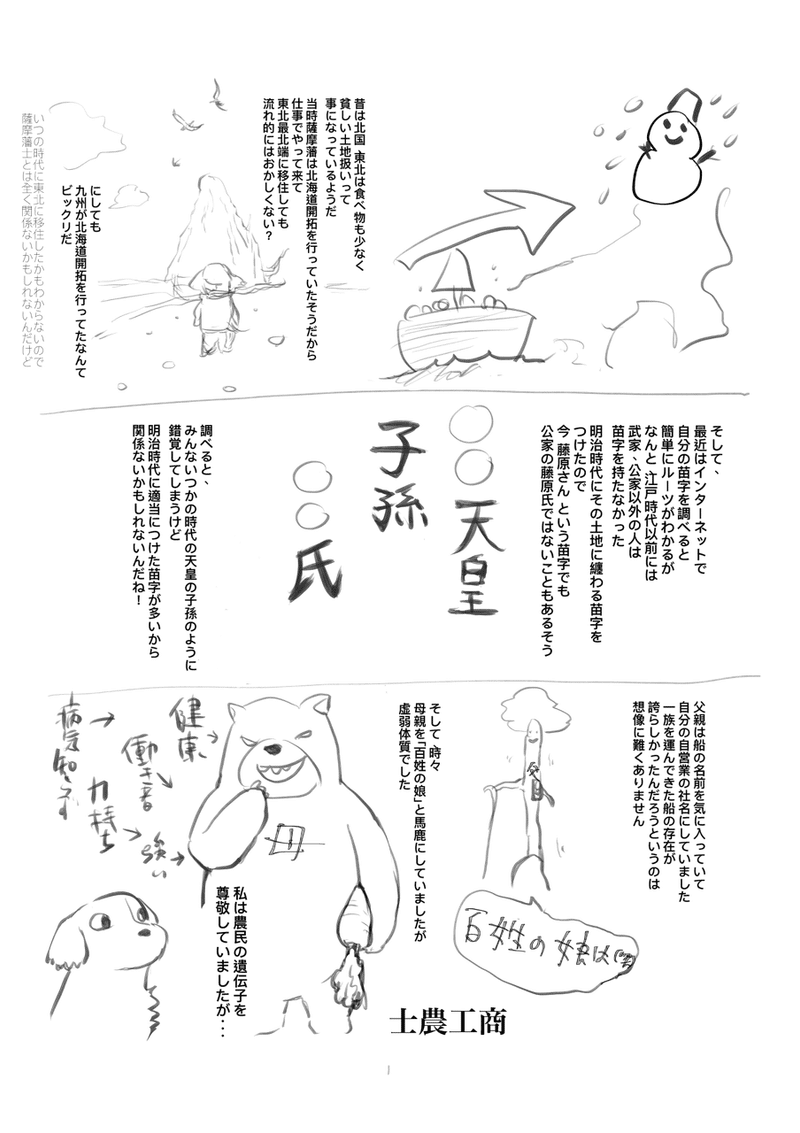 昔は北国、東北は食べ物も少なく
貧しい土地扱いって
事になっているようだ
当時薩摩藩は北海道開拓を行っていたそうだから
仕事でやって来て
東北最北端に移住しても
流れ的にはおかしくない?
にしても
九州が北海道開拓を行ってたなんて
ビックリだ
いつの時代に東北に移住したかもわからないので
薩摩藩士とは全く関係ないかもしれないんだけど
そして、
最近はインターネットで
自分の苗字を調べると
簡単にルーツがわかるが
なんと、江戸時代以前には
武家、公家以外の人は
苗字を持たなかった
明治時代にその土地に纏わる苗字を
つけたので
今、藤原さん、という苗字でも
公家の藤原氏ではないこともあるそう
○○天皇
子孫
○○氏
調べると、
みんないつかの時代の天皇の子孫のように
錯覚してしまうけど
明治時代に適当につけた苗字が多いから
関係ないかもしれないんだね!
父親は船の名前を気に入っていて
自分の自営業の社名にしていました
一族を運んできた船の存在が
誇らしかったんだろうというのは
想像に難くありません
父
百姓の娘は(笑)
そして、時々
母親を「百姓の娘」と馬鹿にしていましたが
虚弱体質でした
母
健康→
働き者→
力持ち→
強い→
病気知らず→
私は農民の遺伝子を
尊敬していましたが・・・
士農工商
1